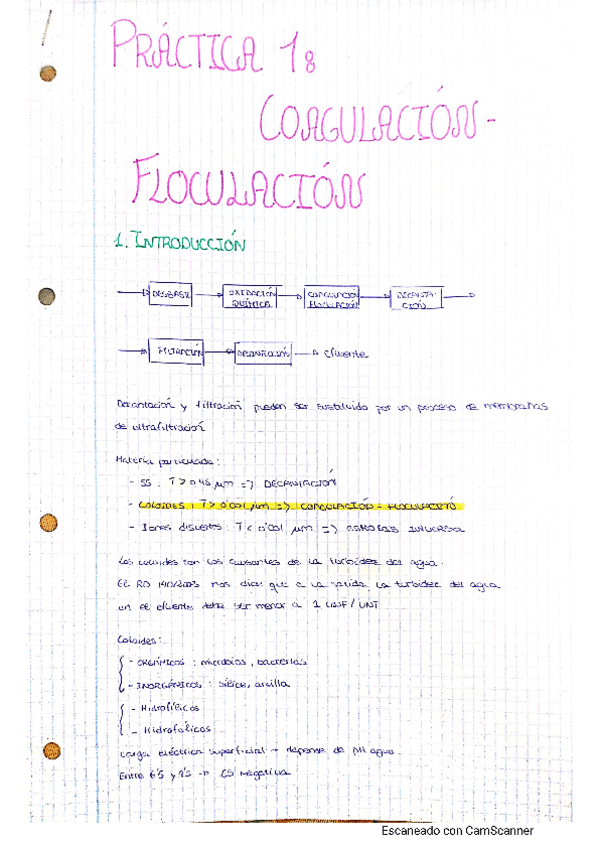 PRÁCTICA 1:
COAGULACIÓN-
FLOCULACIÓN
1. INTRODUCCIÓN
DESBASTE OXIDACIÓN QUÍMICA COAGULACIÓN FLOCULACIÓN DECANTACIÓN
FILTRACIÓN efluente
Decantación y filtración pueden ser sustituido por un proceso de membranas
de ultrafiltración
Materia particulada:
- SS : T > 0'45 µm => DECANTACIÓN
- COLOIDES : T > 0'001 µm => COAGULACIÓN - FLOCULACIÓN
- Iones disueltos : T < 0'001 µm => OSMOSIS INVERSA
Los coloides son los causantes de la turbidez del agua.
El RD 140/2003 nos dice que a la salida la turbidez del agua
en el efluente debe ser menor a 1 UNF/UNT
Coloides:
- ORGÁNICOS : microbios, bacterias
- INORGÁNICOS : sílice, arcilla
- Hidrofílicos
- Hidrofóbicos
Carga eléctrica superficial → depende de pH agua.
Entre 6'5 y 9'5 → CS negativa
Escaneado con CamScanner